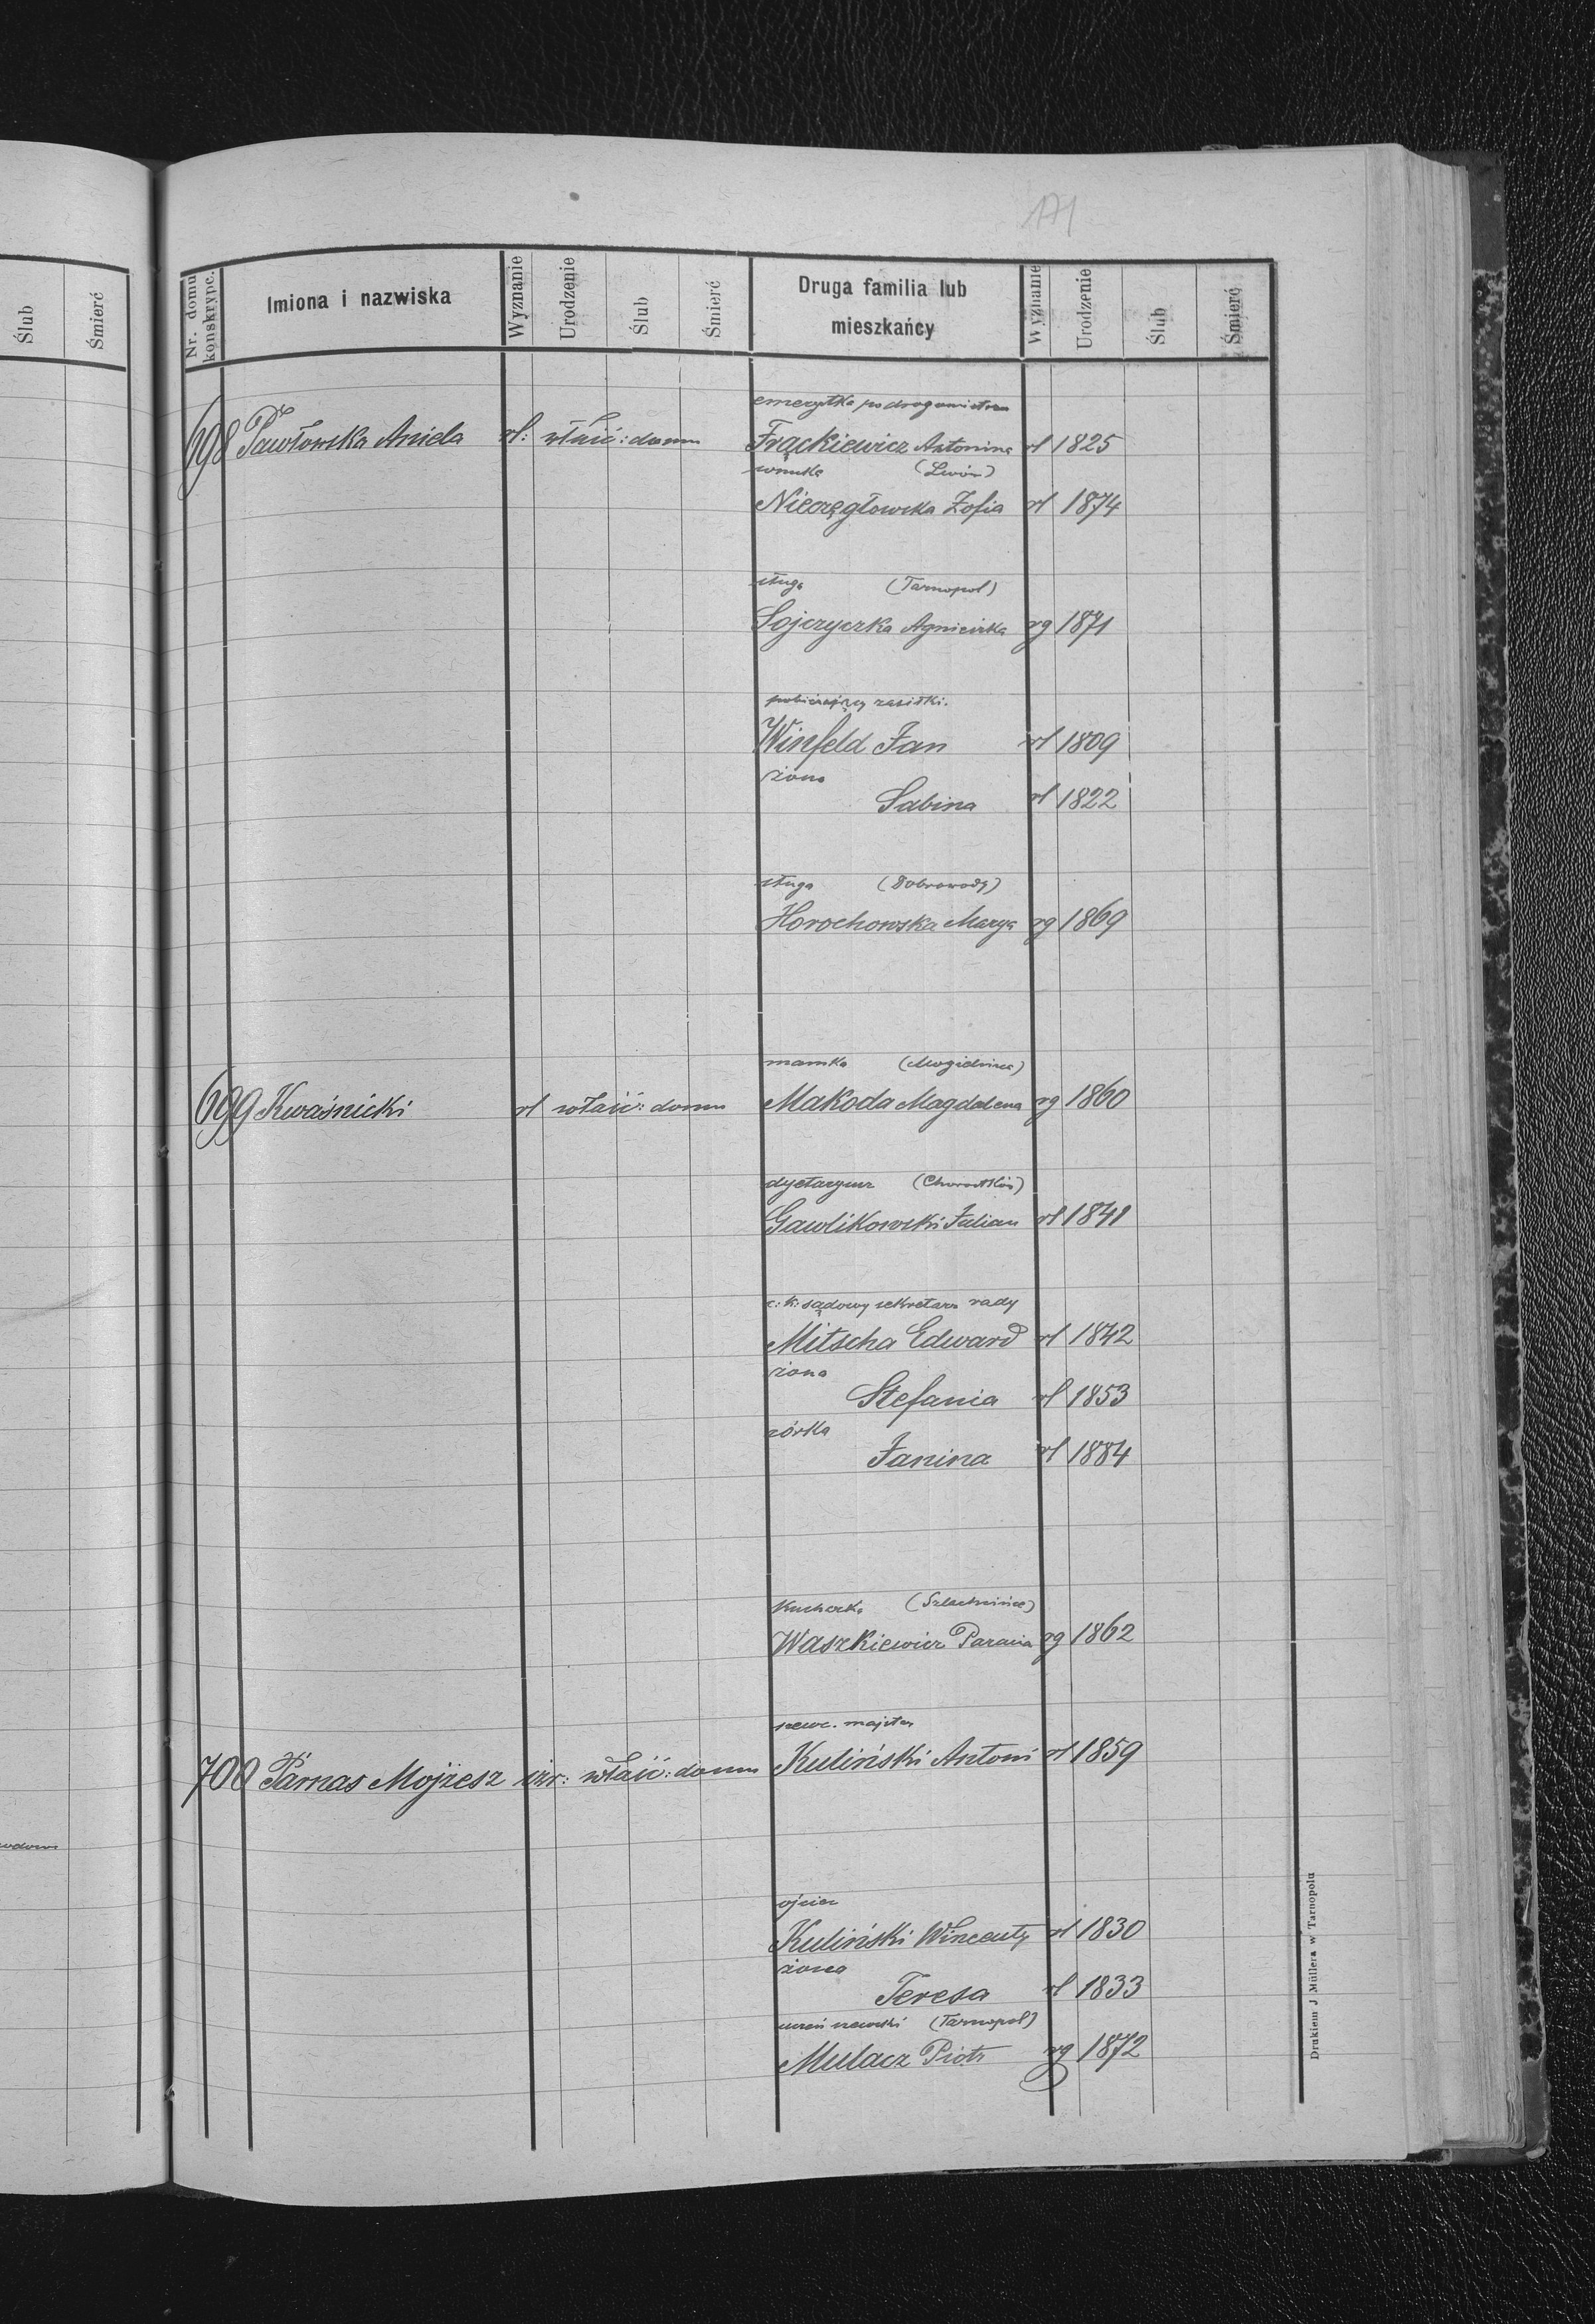 171
Ślub
Śmierć
Nr. domu konskrypc.
Imiona i nazwiska
Wyznanie
Urodzenie
Ślub
Śmierć
Druga familia lub
mieszkańcy
Wyznanie
Urodzenie
Ślub
Śmierć
emerytka po drogomistrzu
698 Pawłowska Aniela rł: właść: domu Frąckiewicz Antonina rł 1825
wnuka (Lwów)
Niezęgłowska Zofia rł 1874
sługa (Tarnopol)
Sojczyczka Agnieszka rg 1871
pobierający zasiłki.
Winfeld Jan rł 1809
żona
Sabina rł 1822
sługa (Dobrowody)
Horochowska Marya rg 1869
mamka
699 Kwaśnicki rł właść: domu Makoda Magdalena rg 1860
dyetaryusz (Chorostków)
Gawlikowski Julian rł 1841
c: k: sądowy sekretarz rady
Mitscha Edward rł 1842
żona
Stefania rł 1853
córka
Janina rł 1884
kucharka (Szlachcińce)
Waszkiewicz Parania rg 1862
szewc. majster
700 Parnas Mojżesz izr: właść: domu Kuliński Antoni rł 1859
ojciec
Kuliński Wincenty rł 1830
żona
Teresa rł 1833
uczeń szewski (Tarnopol)
Mulacz Piotr rg 1872
Drukiem J Müllera w Tarnopolu